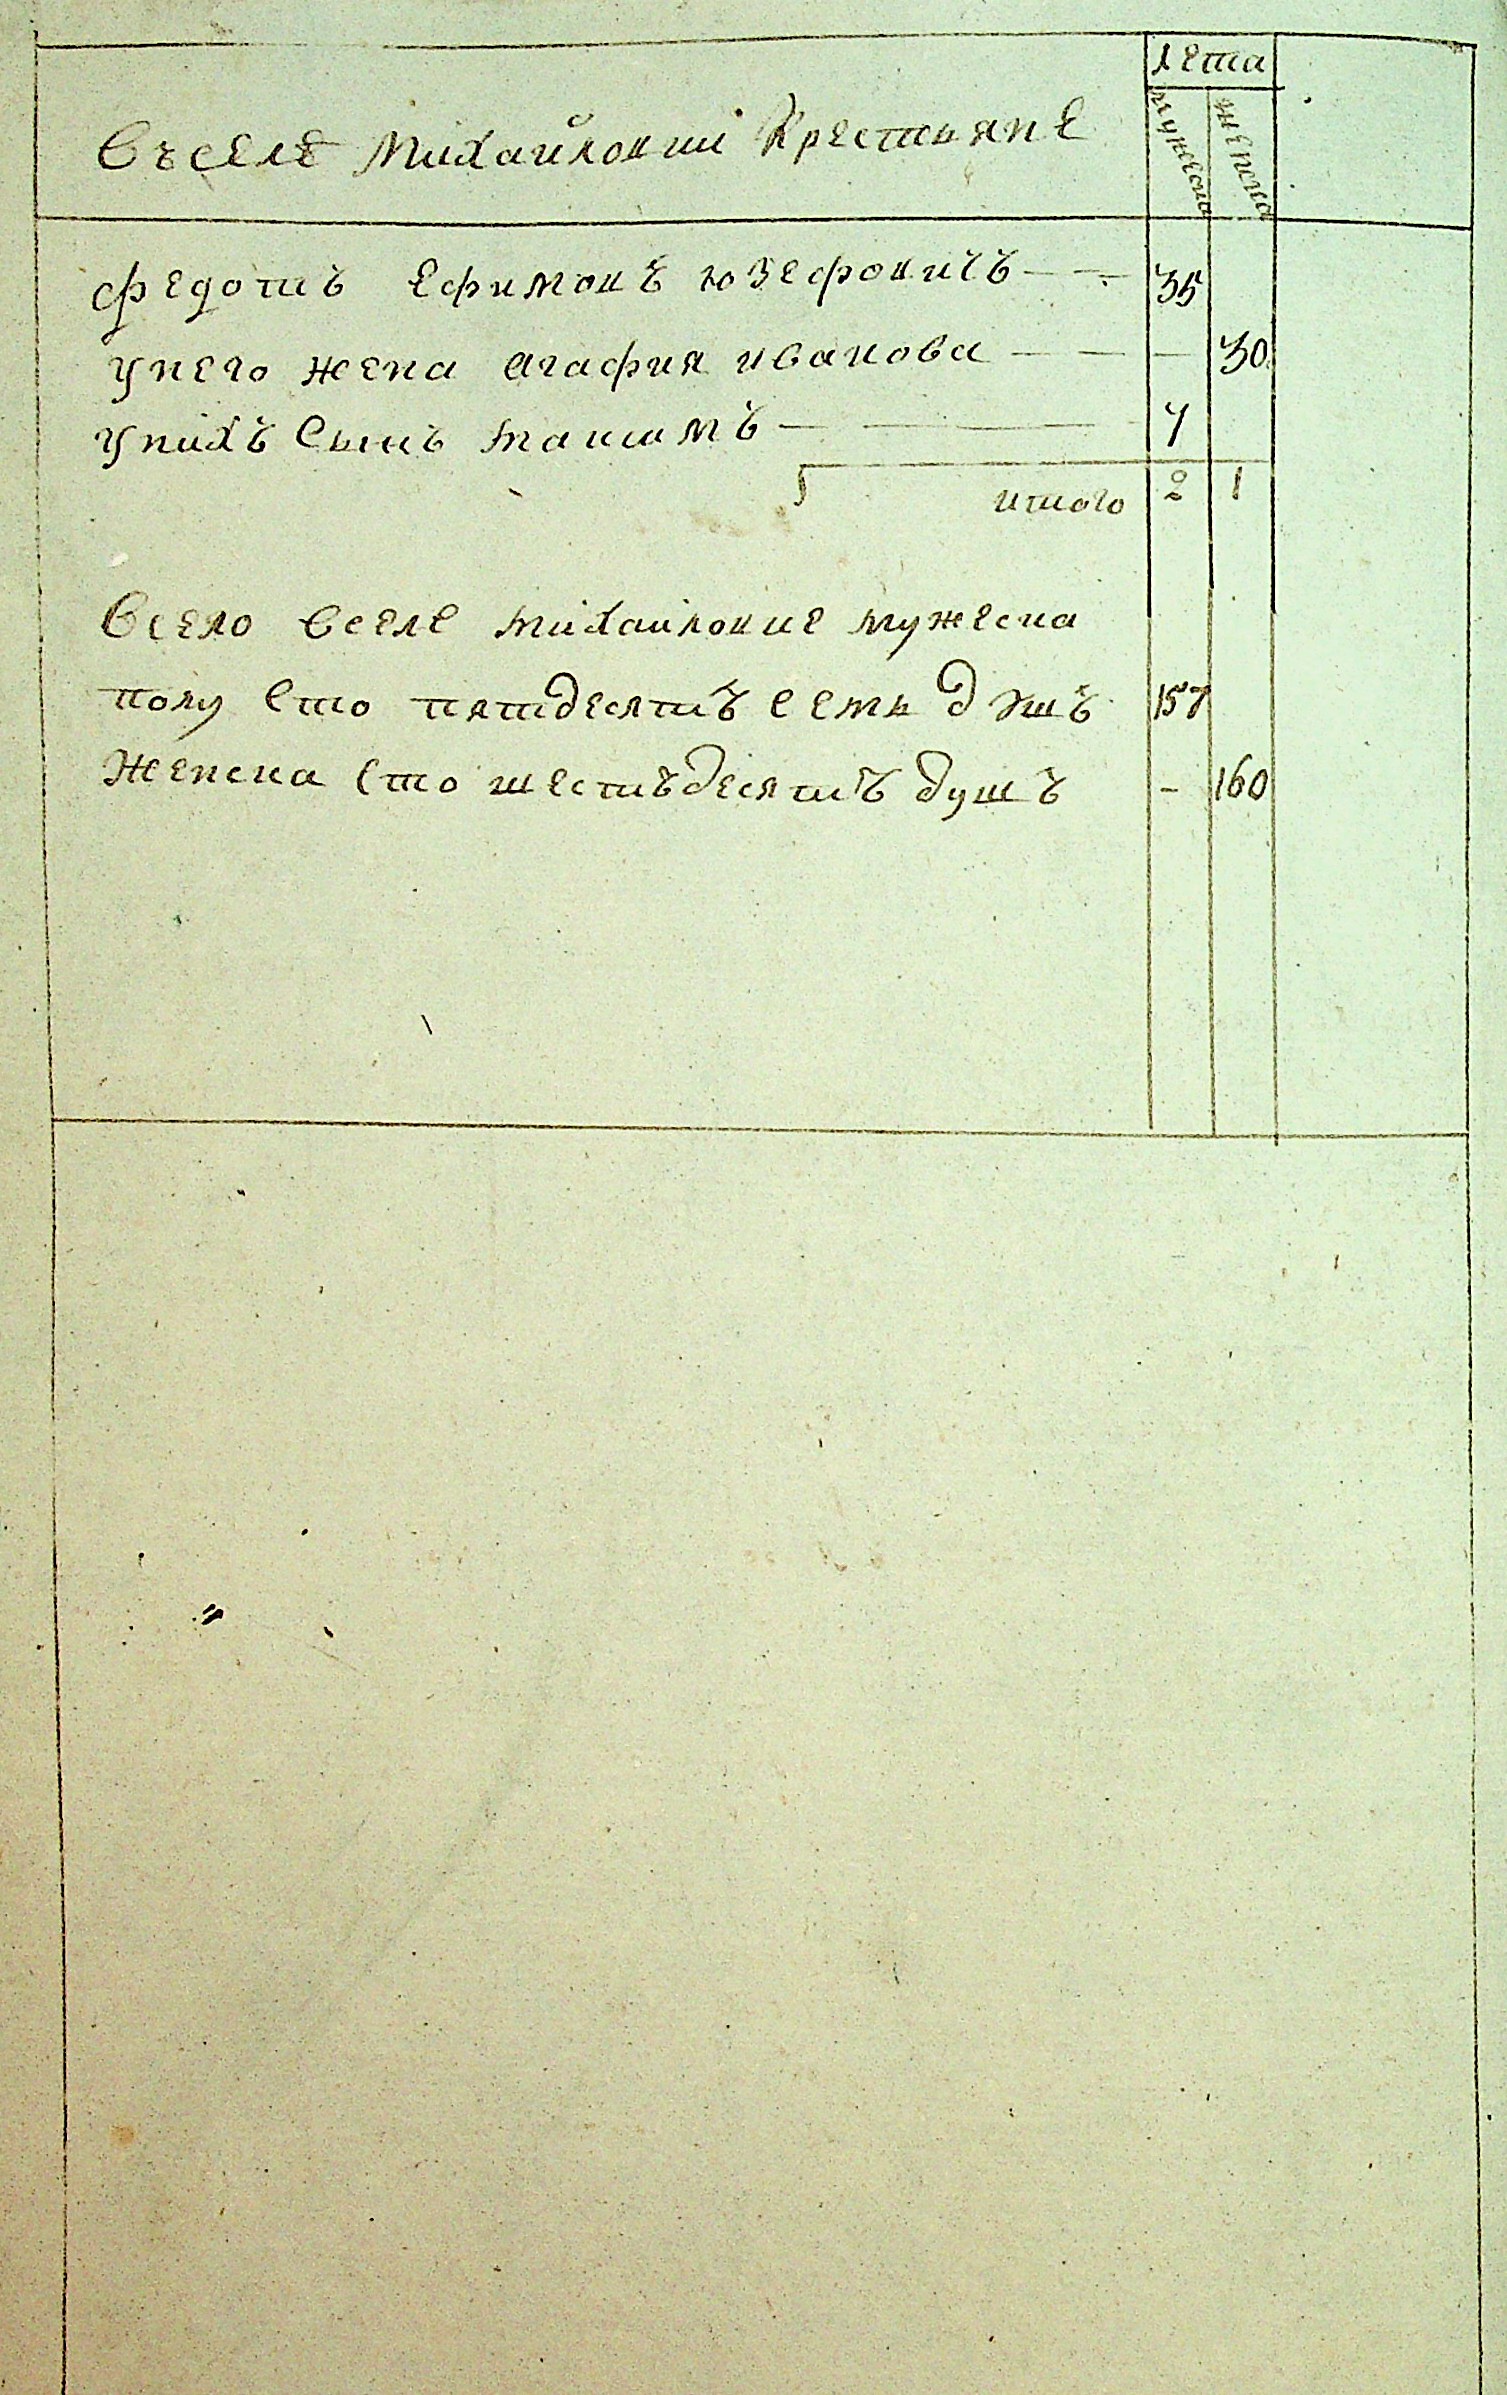 лета
мужеска
женска
Въселе Михайловки Крестьяне
федотъ Ефимовъ юзефовичъ — — 35
унего жена агафия иванова — — — 30
унихъ Сынъ Максимъ — — 7
итого 2 1
Всего вселе Михайловке мужеска
полу Сто пятдесятъ семь душъ 157
Женска Сто шестьдесятъ душъ - 160